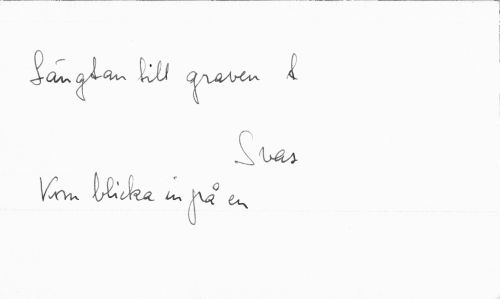 Längtan till graven t
Svas
Kom blicka in på en